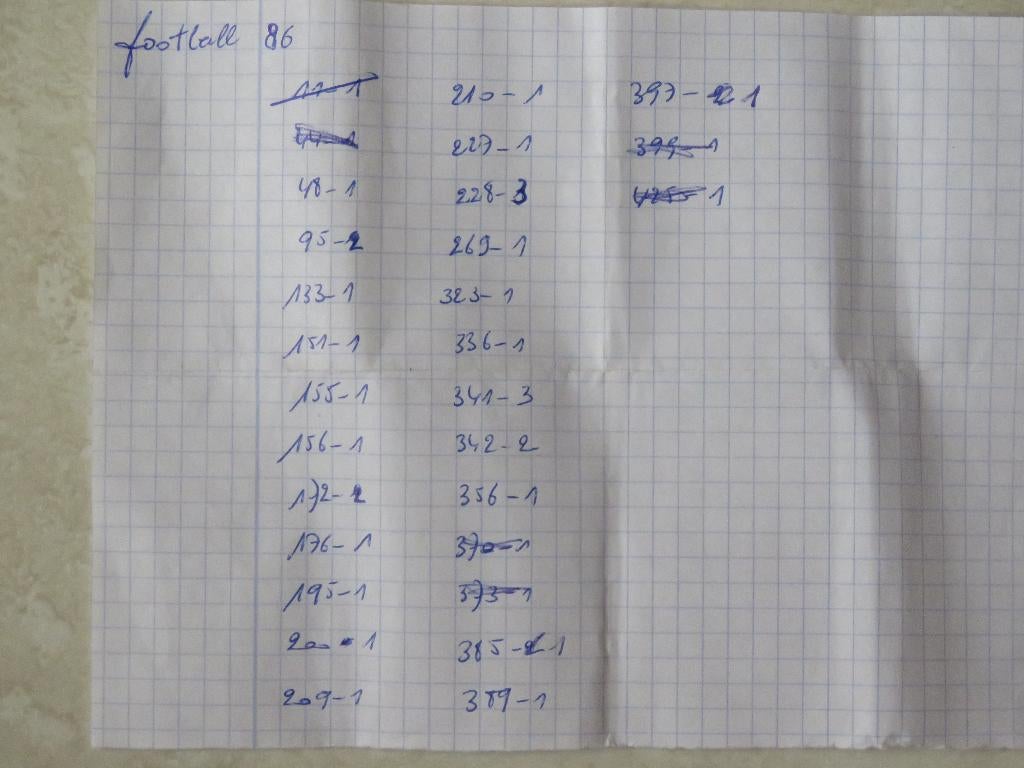 football 86
11-1
48-1
95-2
133-1
151-1
155-1
156-1
172-2
176-1
195-1
200-1
209-1
210-1
227-1
228-3
269-1
323-1
336-1
341-3
342-2
356-1
370-1
373-1
385-1
389-1
397-1
399-1
1